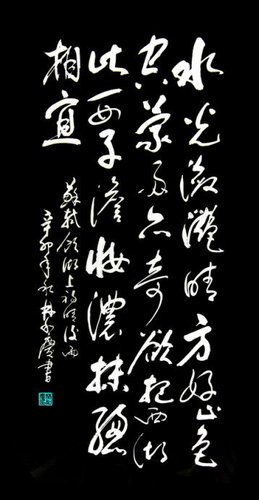 水光瀲灩晴方好山色
空蒙雨亦奇欲把西湖
比西子澹妝濃抹總
相宜
蘇軾飲湖上初晴後雨
辛卯年秋 書